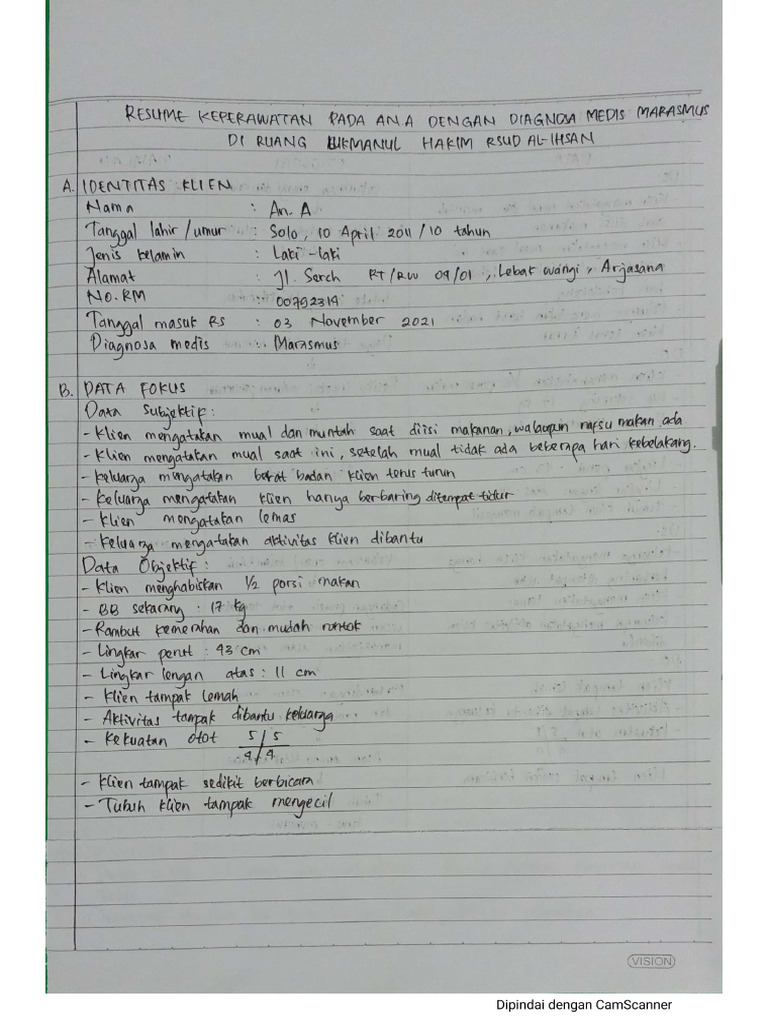 RESUME KEPERAWATAN PADA AN.A DENGAN DIAGNOSA MEDIS MARASMUS
DI RUANG LUKMANUL HAKIM RSUD AL-IHSAN
A. IDENTITAS KLIEN
Nama : An. A
Tanggal lahir / umur : Solo, 10 April 2011 / 10 tahun
Jenis kelamin : Laki-laki
Alamat : Jl. RT/RW 09/01, Lebak wangi, Arjasana
NO.RM : 00792319
Tanggal masuk RS : 03 November 2021
Diagnosa medis : Marasmus
B. DATA FOKUS
Data Subjektif :
- Klien mengatakan mual dan muntah saat diisi makanan, walaupun nafsu makan ada
- Klien mengatakan mual saat ini, setelah mual tidak ada beberapa hari kebelakang.
- Keluarga mengatakan berat badan klien terus turun
- Keluarga mengatakan klien hanya berbaring ditempat tidur
- Klien mengatakan lemas
- Keluarga mengatakan aktivitas klien dibantu
Data Objektif :
- Klien menghabiskan 1/2 porsi makan
- BB sekarang : 17 kg
- Rambut kemerahan dan mudah rontok
- Lingkar perut : 43 cm
- Lingkar lengan atas : 11 cm
- Klien tampak lemah
- Aktivitas tampak dibantu keluarga
- Kekuatan otot 5/5
4/4
- Klien tampak sedikit berbicara
- Tubuh klien tampak mengecil
VISION
Dipindai dengan CamScanner